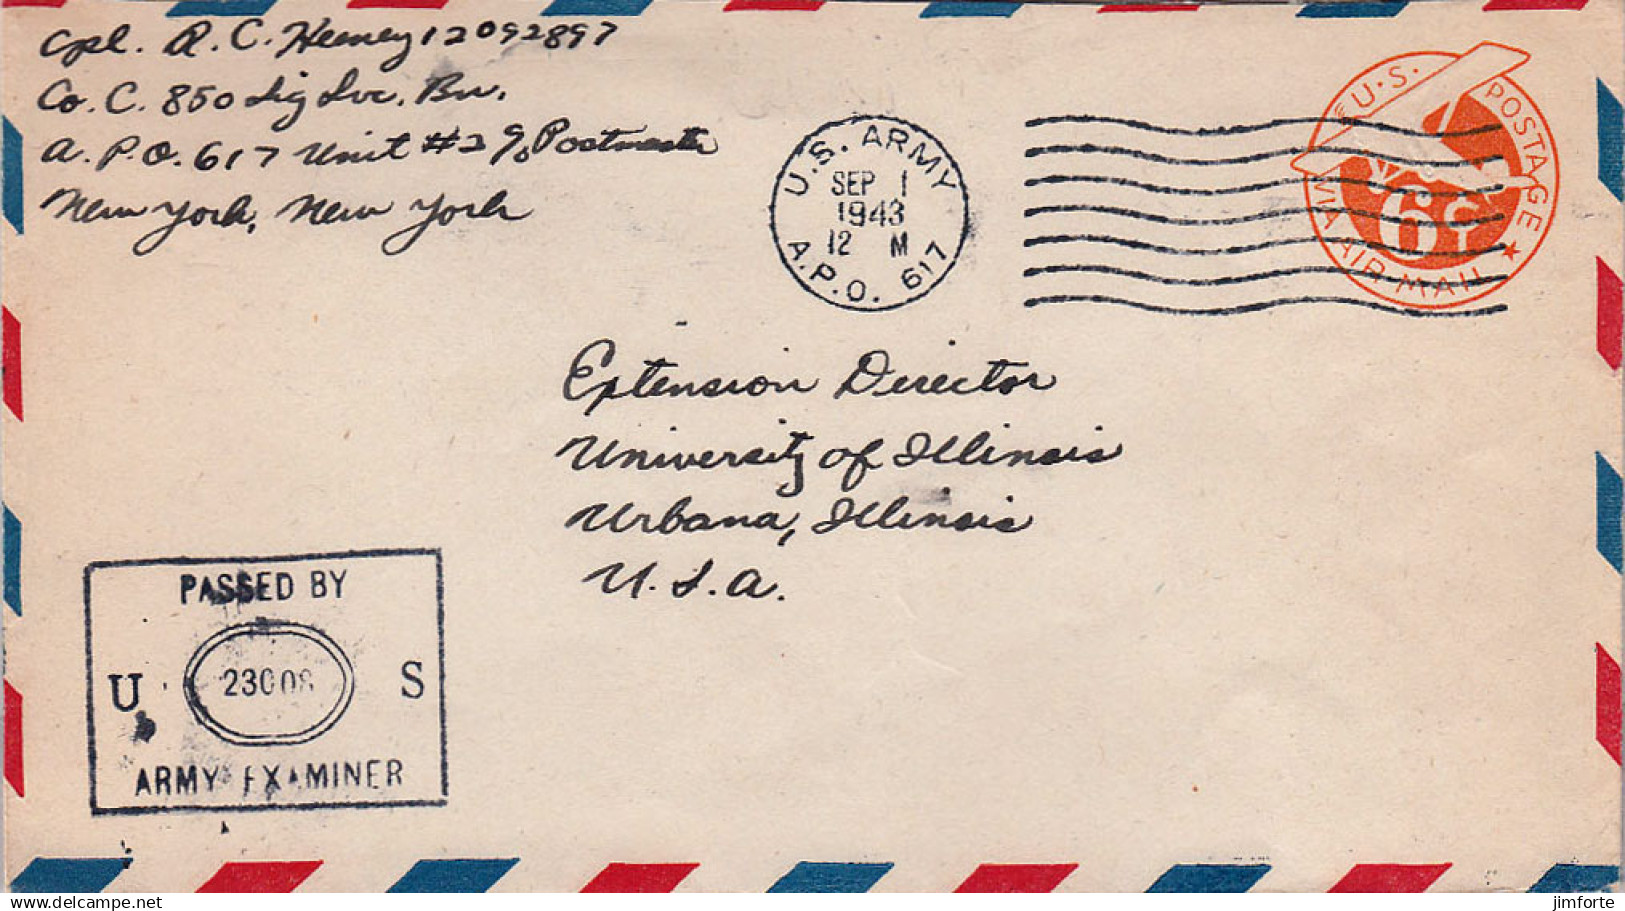 Cpl. R. C. Heeney 12092897
Co. C. 850 Sig Svc. Bn.
A. P. O. 617 Unit #2 c/o Postmaster
New York, New York
U.S. ARMY
SEP 1
1943
12 M
A.P.O. 617
U.S. POSTAGE
6¢
VIA AIR MAIL
Extension Director
University of Illinois
Urbana, Illinois
U.S.A.
PASSED BY
U 23008 S
ARMY EXAMINER
delcampe.net
jimforte